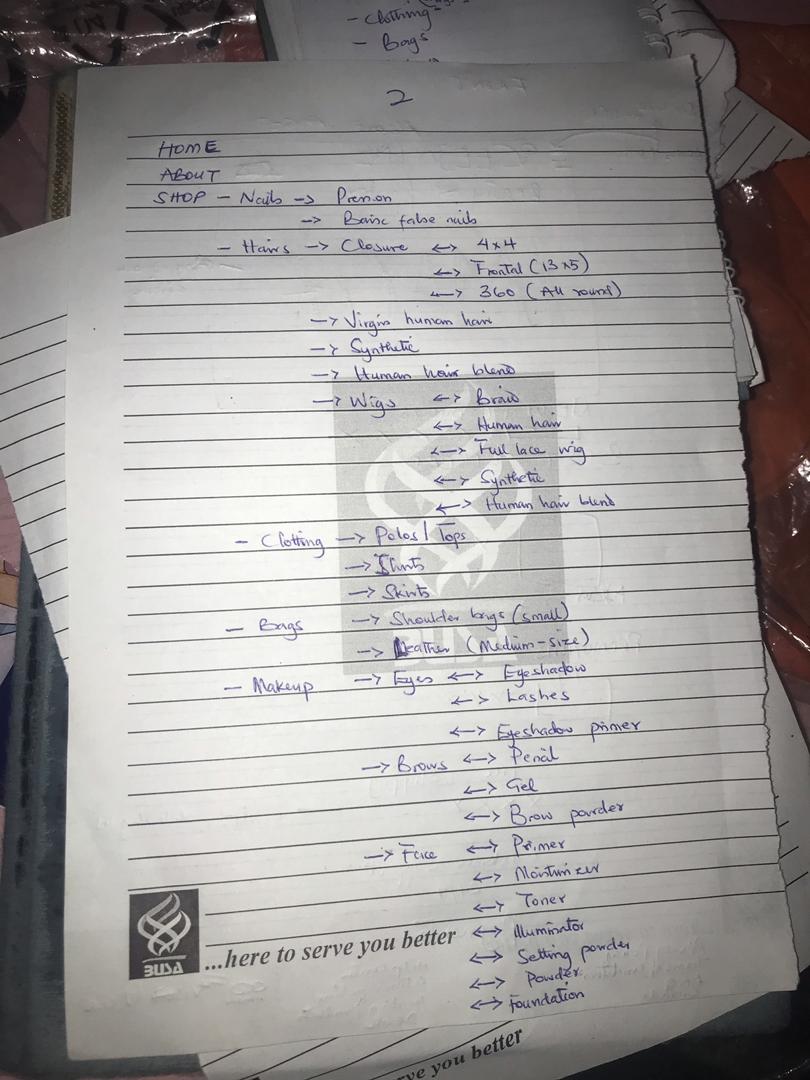 - Clothing
- Bags
2
HOME
ABOUT
SHOP - Nails -> Press on
-> Basic false nails
- Hairs -> Closure <-> 4x4
<-> Frontal (13x5)
<-> 360 (All round)
-> Virgin human hair
-> Synthetic
-> Human hair blend
-> Wigs <-> Braid
<-> Human hair
<-> Full lace wig
<-> Synthetic
<-> Human hair blend
- Clothing -> Polos / Tops
-> Shirts
-> Skirts
- Bags -> Shoulder bags (small)
-> Leather (Medium-size)
- Makeup -> Eyes <-> Eyeshadow
<-> Lashes
<-> Eyeshadow primer
-> Brows <-> Pencil
<-> Gel
<-> Brow powder
-> Face <-> Primer
<-> Moisturizer
<-> Toner
<-> Illuminator
<-> Setting powder
<-> Powder
<-> Foundation
BUSA
BUSA ...here to serve you better
ve you better